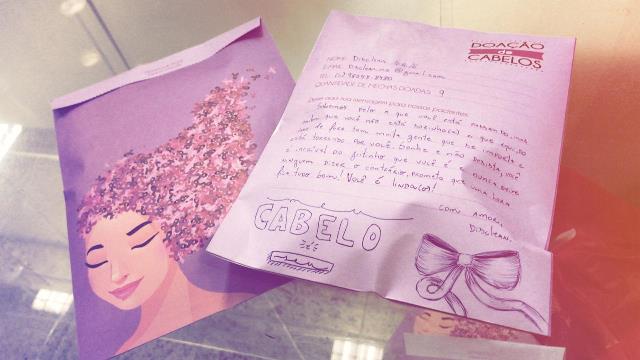 DOAÇÃO
de
CABELOS
NOME: Disclean
E-MAIL: @gmail.com
TEL:
QUANTIDADE DE MECHAS DOADAS: 9
Deixe aqui sua mensagem para nossos pacientes:
Sabemos pelo o que você está passando, mas
saiba que você não está sozinho(a) e que aqui do
lado de fora tem muita gente que se importa e
está torcendo por você. Sonhe e não desista, você
é incrível do jeitinho que você é e nunca deixe
ninguém dizer o contrário, prometo que uma hora
fica tudo bem! Você é linda(o)!
COM AMOR,
Disclean.
CABELO
meu